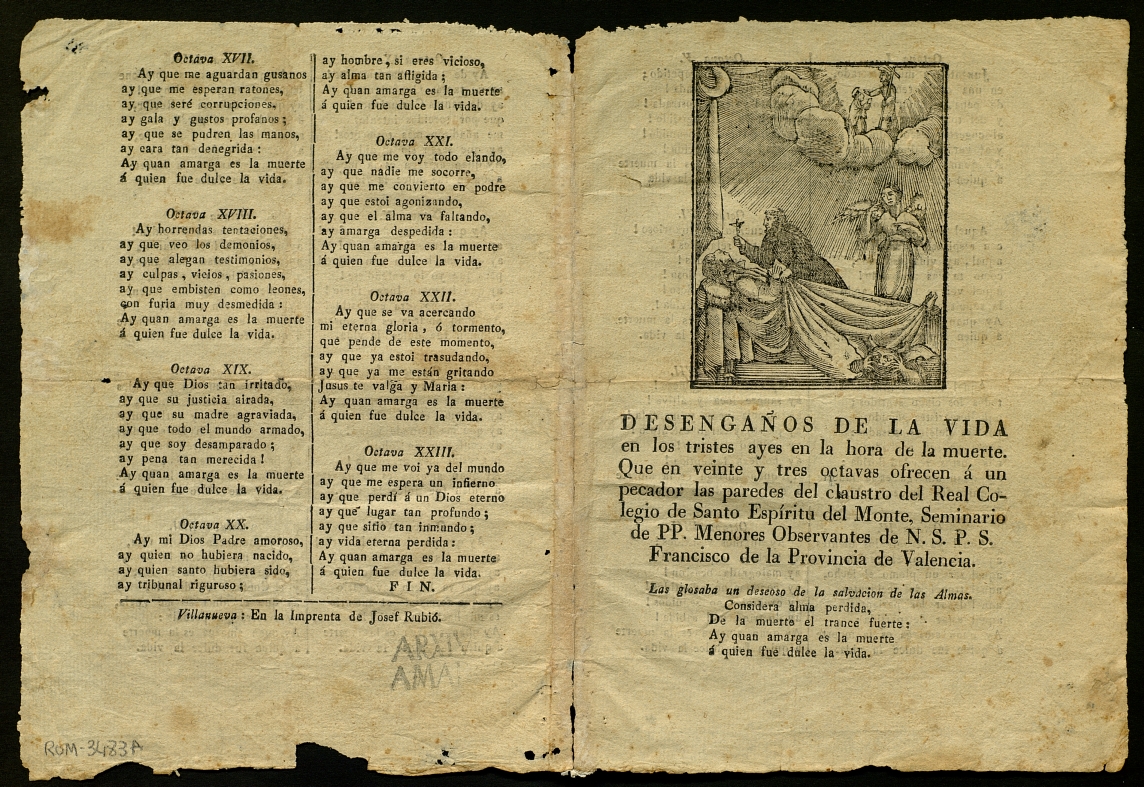 Octava XVII.
Ay que me aguardan gusanos
ay que me esperan ratones,
ay que seré corrupciones,
ay gala y gustos profanos;
ay que se pudren las manos,
ay cara tan denegrida:
Ay quan amarga es la muerte
á quien fue dulce la vida.
Octava XVIII.
Ay horrendas tentaciones,
ay que veo los demonios,
ay que alegan testimonios,
ay culpas, vicios, pasiones,
ay que embisten como leones,
con furia muy desmedida:
Ay quan amarga es la muerte
á quien fue dulce la vida.
Octava XIX.
Ay que Dios tan irritado,
ay que su justicia airada,
ay que su madre agraviada,
ay que todo el mundo armado,
ay que soy desamparado;
ay pena tan merecida!
Ay quan amarga es la muerte
á quien fue dulce la vida.
Octava XX.
Ay mi Dios Padre amoroso,
ay quien no hubiera nacido,
ay quien santo hubiera sido,
ay tribunal riguroso;
ay hombre, si eres vicioso,
ay alma tan afligida;
Ay quan amarga es la muerte
á quien fue dulce la vida.
Octava XXI.
Ay que me voy todo elando,
ay que nadie me socorre,
ay que me convierto en podre
ay que estoi agonizando,
ay que el alma va faltando,
ay amarga despedida:
Ay quan amarga es la muerte
á quien fue dulce la vida.
Octava XXII.
Ay que se va acercando
mi eterna gloria, ó tormento,
que pende de este momento,
ay que ya estoi trasudando,
ay que ya me están gritando
Jusus te valga y Maria:
Ay quan amarga es la muerte
á quien fue dulce la vida.
Octava XXIII.
Ay que me voi ya del mundo
ay que me espera un infierno
ay que perdí á un Dios eterno
ay que lugar tan profundo;
ay que sitio tan inmundo;
ay vida eterna perdida:
Ay quan amarga es la muerte
á quien fue dulce la vida.
FIN.
Villanueva: En la Imprenta de Josef Rubió.
ARXIU
AMA
ROM-3483A
DESENGAÑOS DE LA VIDA
en los tristes ayes en la hora de la muerte.
Que en veinte y tres octavas ofrecen á un
pecador las paredes del claustro del Real Co-
legio de Santo Espíritu del Monte, Seminario
de PP. Menores Observantes de N. S. P. S.
Francisco de la Provincia de Valencia.
Las glosaba un deseoso de la salvacion de las Almas.
Considera alma perdida,
De la muerte el trance fuerte:
Ay quan amarga es la muerte
á quien fue dulce la vida.